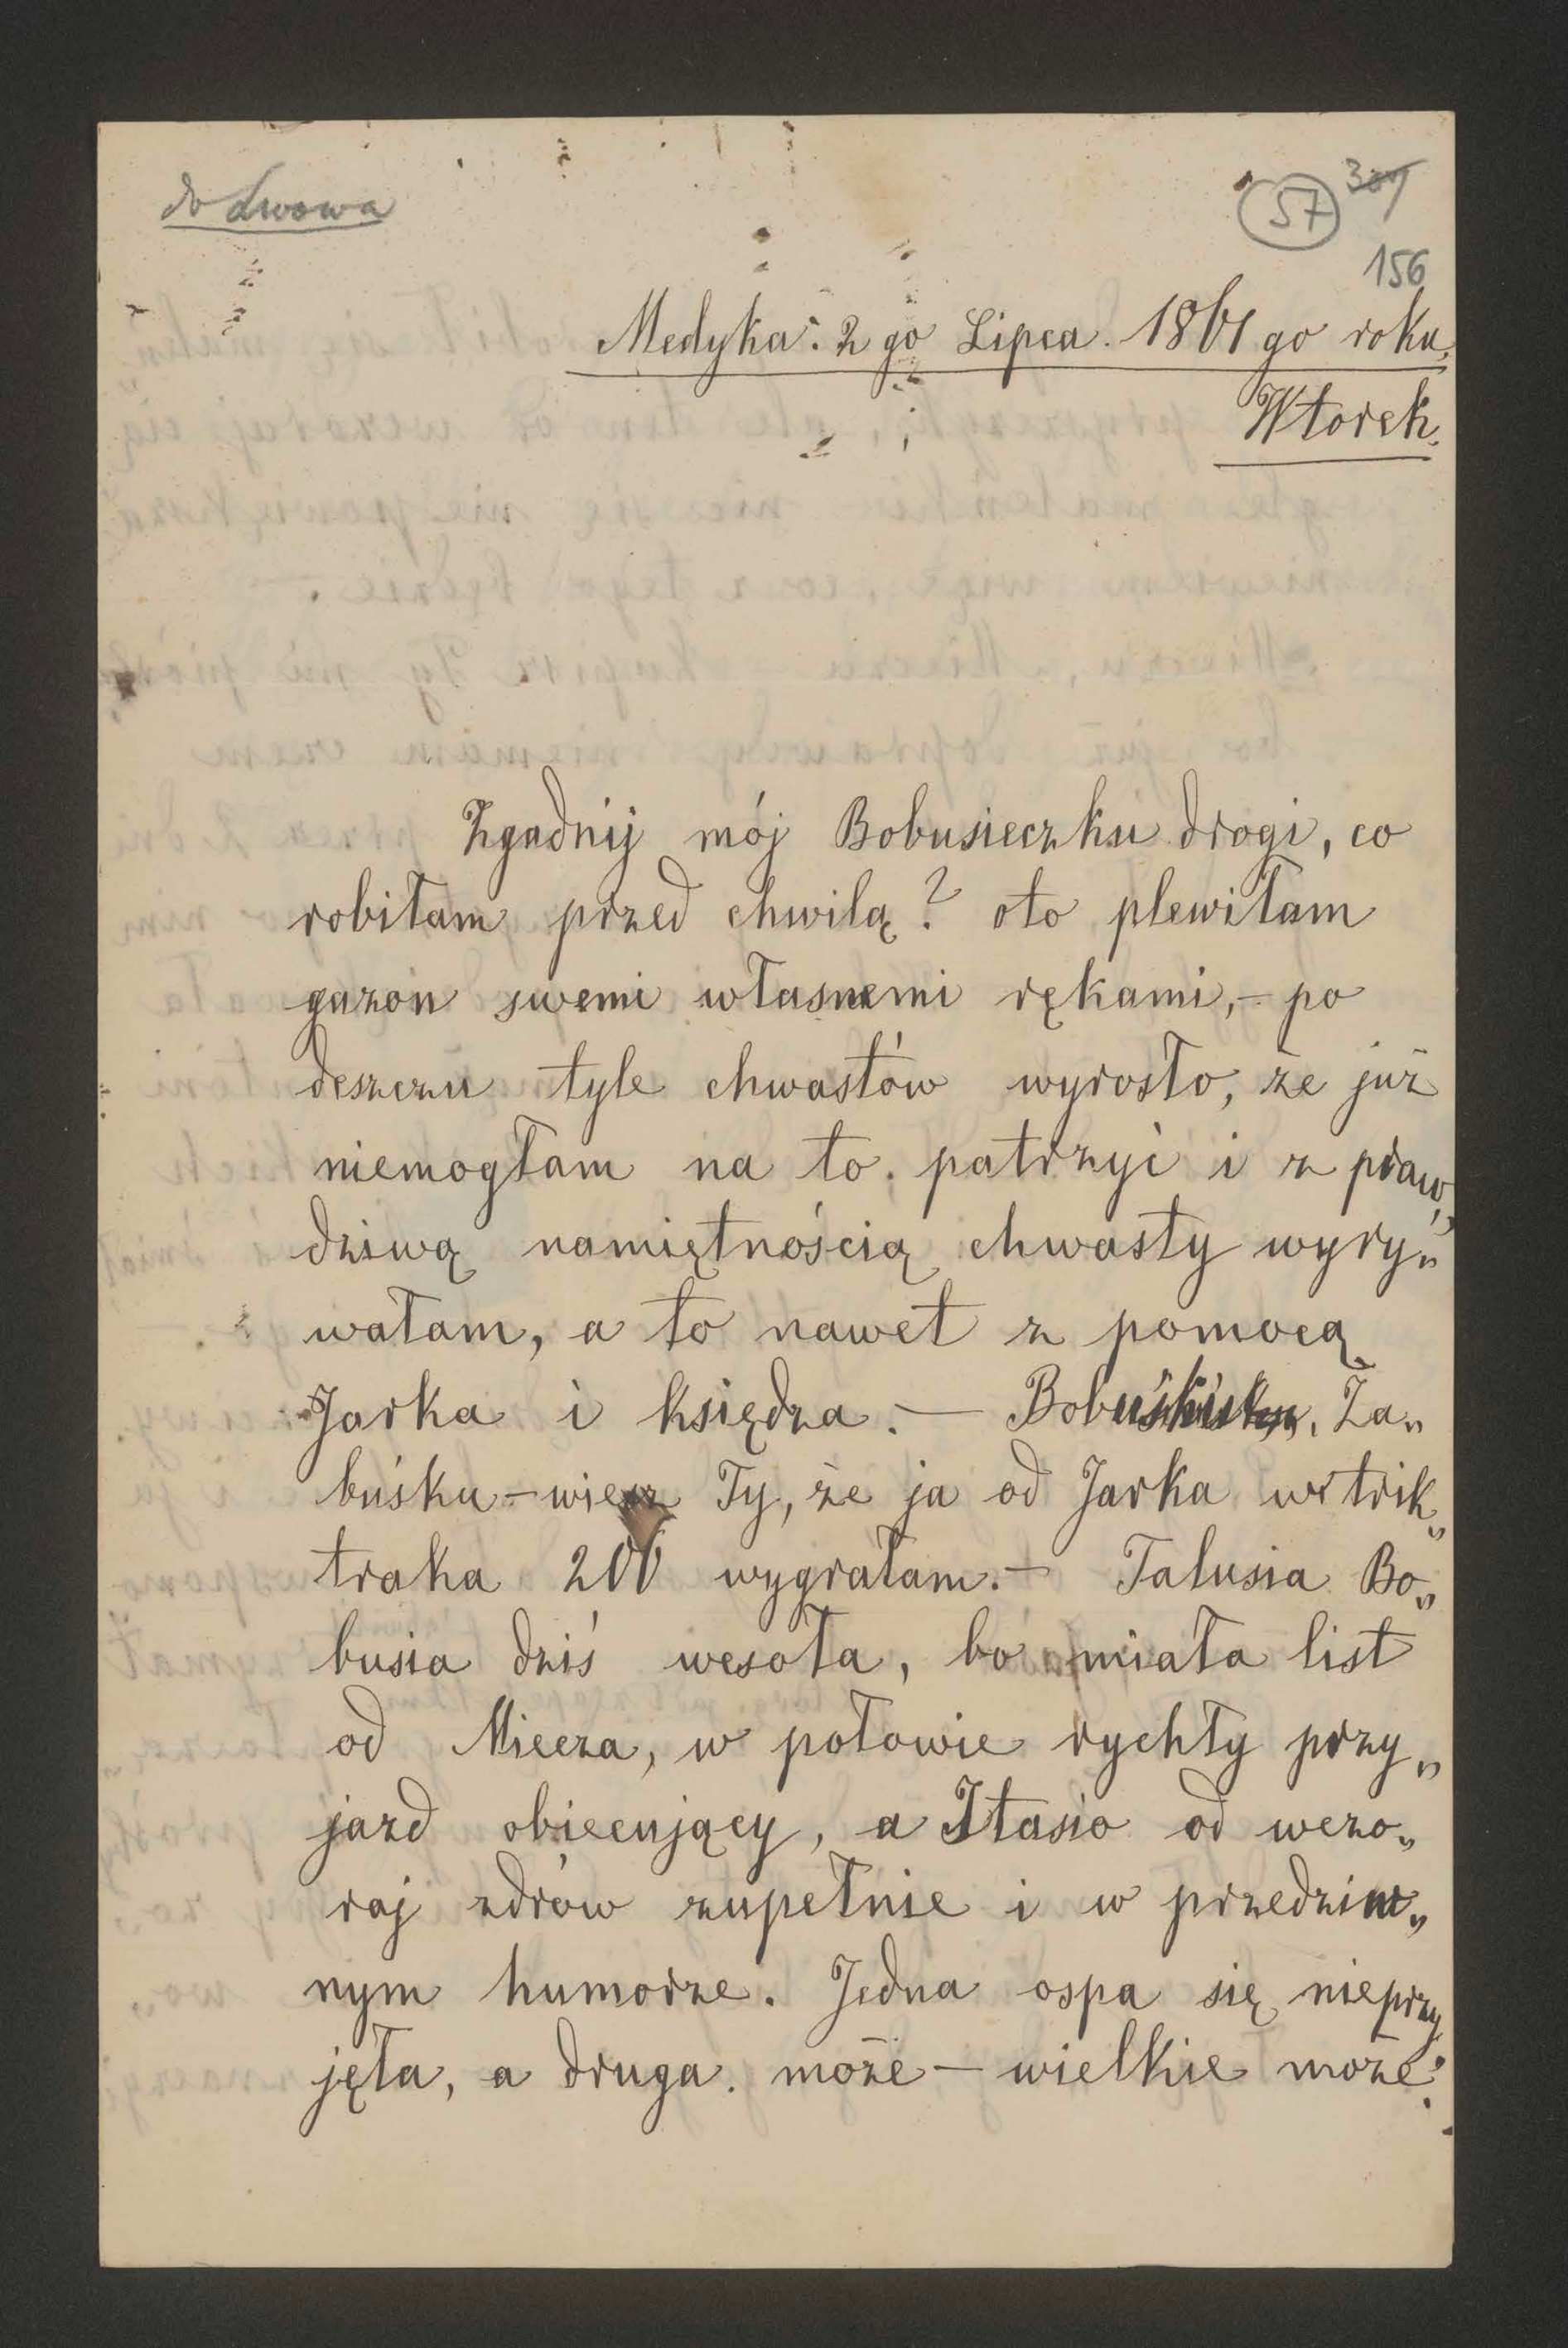 do Lwowa
57 309
156
Medyka. 2 go Lipca. 1861 go roku.
Wtorek.
Zgadnij mój Bobusieczku drogi, co
robiłam przed chwilą? oto plewiłam
gazon swemi własnemi rękami, – po
deszczu tyle chwastów wyrosło, że już
niemogłam na to patrzyć i z praw„
dziwą namiętnością chwasty wyry„
wałam, a to nawet z pomocą
Jarka i księdza. — Ża„
buśku – wiesz Ty, że ja od Jarka w trik„
traka 200 wygrałam. – Talusia Bo„
busia dziś wesoła, bo miała list
od Miecza, w połowie rychły przy„
jazd obiecujący, a Stasio od wczo„
raj zdrów zupełnie i w przedziw„
nym humorze. Jedna ospa się nieprzy
jęła, a druga. może – wielkie może!